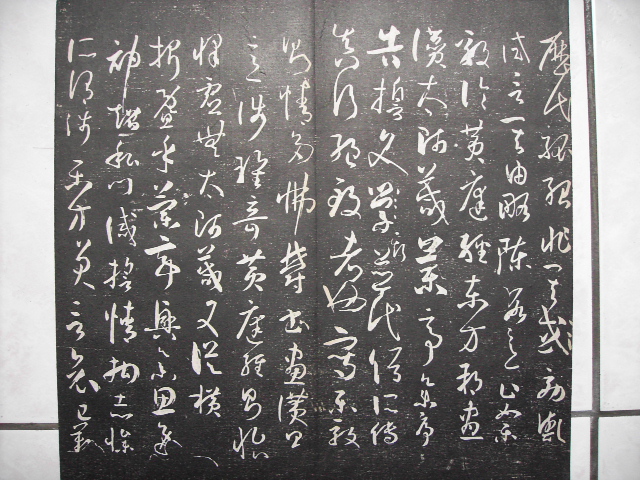 歷代孤紹非其效歟
試言其由略陳數意止如樂
毅論黃庭經東方朔畫
讚太師箴蘭亭集序
告誓文斯並代俗所傳
真行絕致者也寫樂毅
則情多怫鬱書畫讚則
意涉瑰奇黃庭經則怡
懌虛無太師箴又縱橫
爭折暨乎蘭亭興集思逸
神超私門誡誓情拘志慘
所謂涉樂方笑言哀已歎